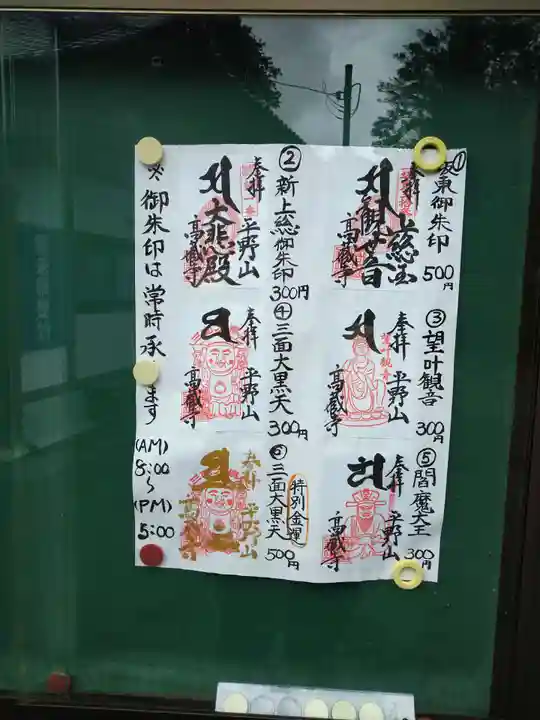 ①坂東御朱印
500円
奉拝
観世音
高蔵寺
②新上総御朱印
300円
奉拝
平野山
大熊殿
高蔵寺
③望叶観音
300円
奉拝
平野山
望叶観音
高蔵寺
④三面大黒天
300円
奉拝
平野山
高蔵寺
⑤閻魔大王
300円
奉拝
平野山
高蔵寺
⑥三面大黒天
特別金輝
500円
奉拝
平野山
高蔵寺
御朱印は常時承
ます
(AM)
8:00
〜
(PM)
5:00